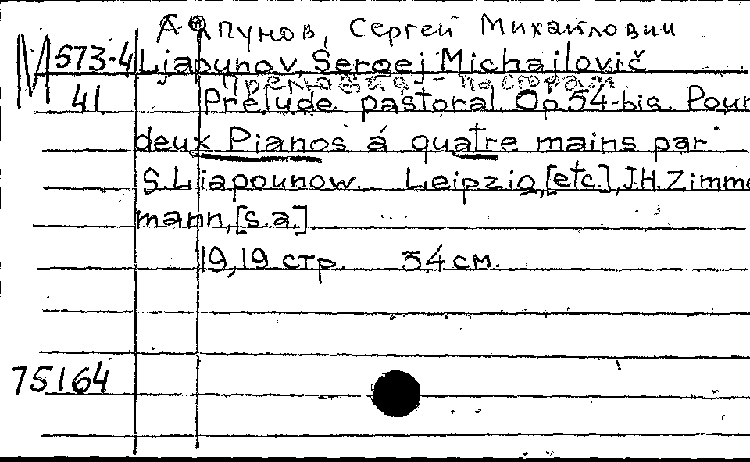 Ляпунов, Сергей Михайлович
М 573-4 Ljapunov, Sergej Michajlovič
Прелюдия-пастораль
41 Prélude pastoral Op.54-bis Pour
deux Pianos á quatre mains par
S.Liapounow. Leipzig,[etc.],J.H.Zimme
mann,[s.a.]
19,19 стр. 34 см.
75164